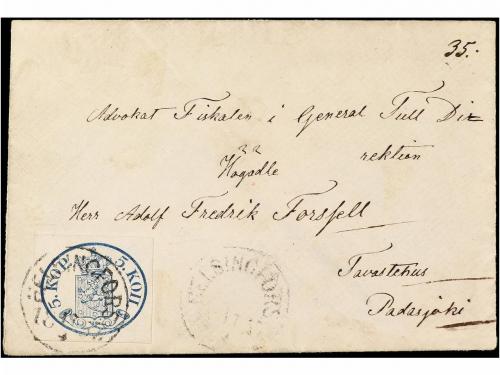 35.-
Advokat Fiskalen i General Tull Di-
rektion
Högädle
Herr Adolf Fredrik Forssell
Tavastehus
Padasjoki
5. KOP. 5. КОП.
HELSINGFORS
HELSINGFORS.